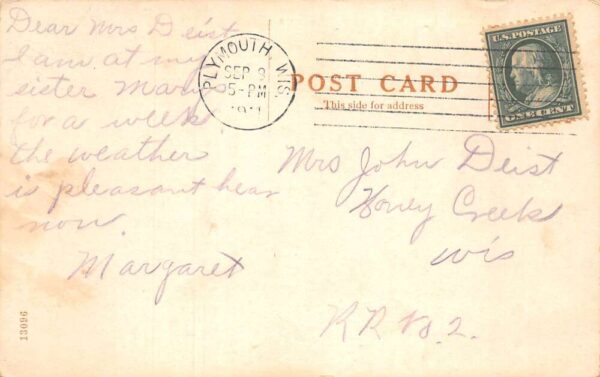 Dear Mrs Deist
I am at my
sister Mary
for a week
the weather
is pleasant hear
now.
Margaret
13096
PLYMOUTH, WIS
SEP 9
5-PM
POST CARD
This side for address
U.S. POSTAGE
ONE CENT
Mrs John Deist
Honey Creek
Wis
R R No. 2.